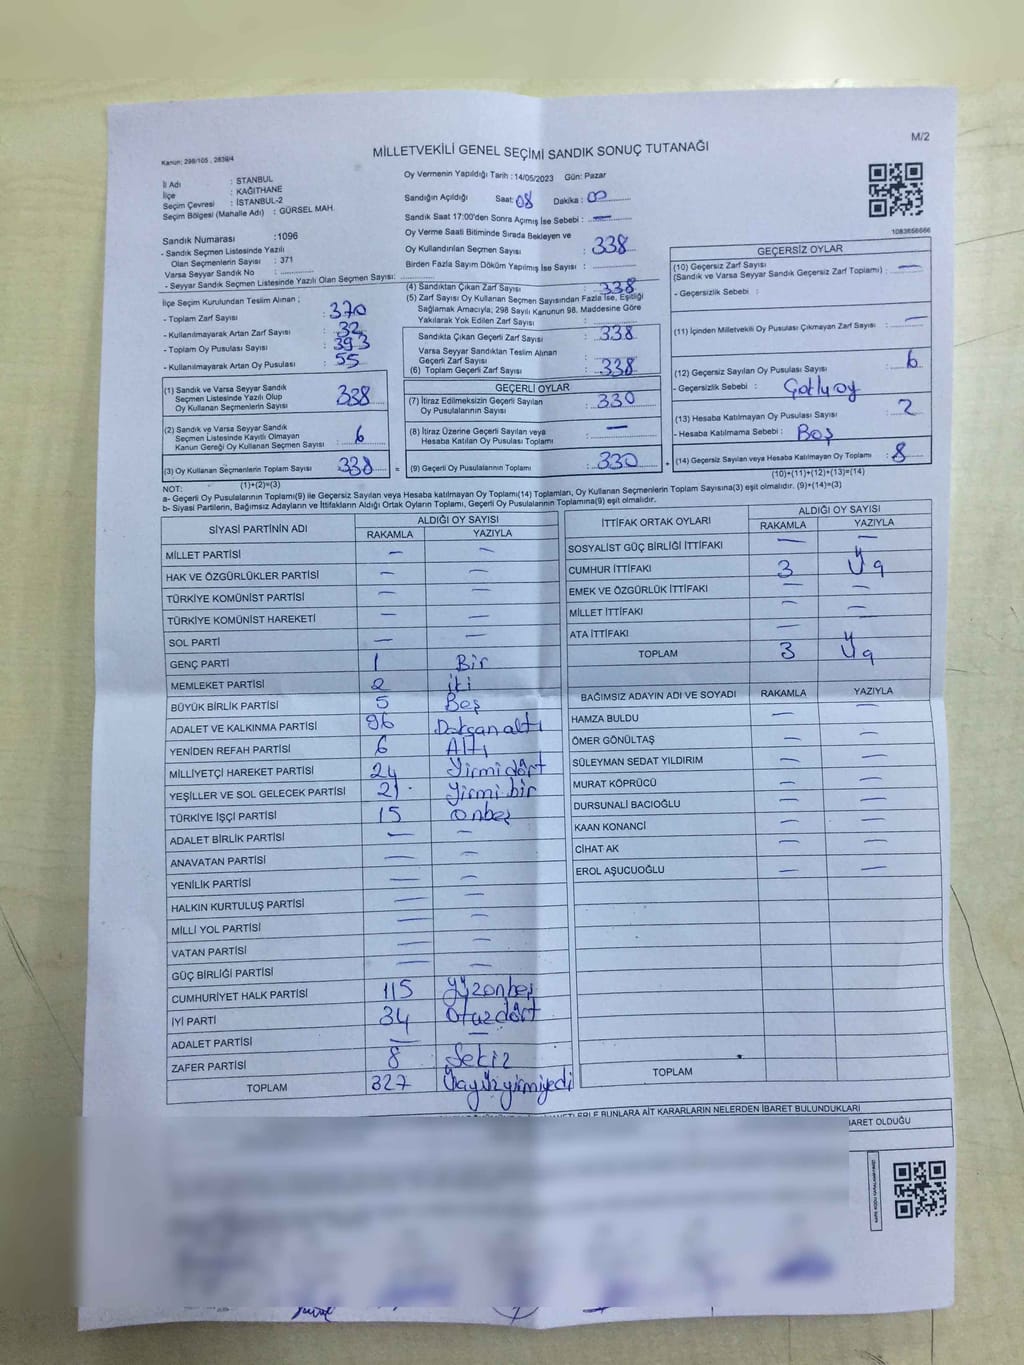 M/2
Kanun: 298/105 , 2839/4
MİLLETVEKİLİ GENEL SEÇİMİ SANDIK SONUÇ TUTANAĞI
İl Adı : STANBUL
İlçe : KAĞITHANE
Seçim Çevresi : İSTANBUL-2
Seçim Bölgesi (Mahalle Adı) : GÜRSEL MAH.
Sandık Numarası :1096
- Sandık Seçmen Listesinde Yazılı
Olan Seçmenlerin Sayısı : 371
Varsa Seyyar Sandık No :
- Seyyar Sandık Seçmen Listesinde Yazılı Olan Seçmen Sayısı:
İlçe Seçim Kurulundan Teslim Alınan ;
- Toplam Zarf Sayısı : 370
- Kullanılmayarak Artan Zarf Sayısı : 32
- Toplam Oy Pusulası Sayısı : 393
- Kullanılmayarak Artan Oy Pusulası : 55
(1) Sandık ve Varsa Seyyar Sandık
Seçmen Listesinde Yazılı Olup
Oy Kullanan Seçmenlerin Sayısı 338
(2) Sandık ve Varsa Seyyar Sandık
Seçmen Listesinde Kayıtlı Olmayan
Kanun Gereği Oy Kullanan Seçmen Sayısı : 6
(3) Oy Kullanan Seçmenlerin Toplam Sayısı : 338 =
(1)+(2)=(3)
Oy Vermenin Yapıldığı Tarih : 14/05/2023 Gün: Pazar
Sandığın Açıldığı Saat: 08 Dakika : 00
Sandık Saat 17:00'den Sonra Açılmış İse Sebebi : —
Oy Verme Saati Bitiminde Sırada Bekleyen ve
Oy Kullandırılan Seçmen Sayısı : 338
Birden Fazla Sayım Döküm Yapılmış İse Sayısı :
(4) Sandıktan Çıkan Zarf Sayısı : 338
(5) Zarf Sayısı Oy Kullanan Seçmen Sayısından Fazla İse, Eşitliği
Sağlamak Amacıyla; 298 Sayılı Kanunun 98. Maddesine Göre
Yakılarak Yok Edilen Zarf Sayısı :
Sandıkta Çıkan Geçerli Zarf Sayısı : 338
Varsa Seyyar Sandıktan Teslim Alınan
Geçerli Zarf Sayısı :
(6) Toplam Geçerli Zarf Sayısı : 338
GEÇERLİ OYLAR
(7) İtiraz Edilmeksizin Geçerli Sayılan
Oy Pusulalarının Sayısı : 330
(8) İtiraz Üzerine Geçerli Sayılan veya
Hesaba Katılan Oy Pusulası Toplamı : —
(9) Geçerli Oy Pusulalarının Toplamı : 330 +
1083656666
GEÇERSİZ OYLAR
(10) Geçersiz Zarf Sayısı
(Sandık ve Varsa Seyyar Sandık Geçersiz Zarf Toplamı) : —
- Geçersizlik Sebebi :
(11) İçinden Milletvekili Oy Pusulası Çıkmayan Zarf Sayısı : —
(12) Geçersiz Sayılan Oy Pusulası Sayısı : 6
- Geçersizlik Sebebi : Çoklu oy
(13) Hesaba Katılmayan Oy Pusulası Sayısı : 2
- Hesaba Katılmama Sebebi : Boş
(14) Geçersiz Sayılan veya Hesaba Katılmayan Oy Toplamı : 8
(10)+(11)+(12)+(13)=(14)
NOT:
a- Geçerli Oy Pusulalarının Toplamı(9) ile Geçersiz Sayılan veya Hesaba katılmayan Oy Toplamı(14) Toplamları, Oy Kullanan Seçmenlerin Toplam Sayısına(3) eşit olmalıdır. (9)+(14)=(3)
b- Siyasi Partilerin, Bağımsız Adayların ve İttifakların Aldığı Ortak Oyların Toplamı, Geçerli Oy Pusulalarının Toplamına(9) eşit olmalıdır.
SİYASİ PARTİNİN ADI ALDIĞI OY SAYISI
RAKAMLA YAZIYLA
MİLLET PARTİSİ — —
HAK VE ÖZGÜRLÜKLER PARTİSİ — —
TÜRKİYE KOMÜNİST PARTİSİ — —
TÜRKİYE KOMÜNİST HAREKETİ — —
SOL PARTİ — —
GENÇ PARTİ 1 Bir
MEMLEKET PARTİSİ 2 iki
BÜYÜK BİRLİK PARTİSİ 5 Beş
ADALET VE KALKINMA PARTİSİ 96 Doksanaltı
YENİDEN REFAH PARTİSİ 6 Altı
MİLLİYETÇİ HAREKET PARTİSİ 24 Yirmidört
YEŞİLLER VE SOL GELECEK PARTİSİ 21 Yirmibir
TÜRKİYE İŞÇİ PARTİSİ 15 onbeş
ADALET BİRLİK PARTİSİ — —
ANAVATAN PARTİSİ — —
YENİLİK PARTİSİ — —
HALKIN KURTULUŞ PARTİSİ — —
MİLLİ YOL PARTİSİ — —
VATAN PARTİSİ — —
GÜÇ BİRLİĞİ PARTİSİ — —
CUMHURİYET HALK PARTİSİ 115 Yüzonbeş
İYİ PARTİ 34 Otuzdört
ADALET PARTİSİ — —
ZAFER PARTİSİ 8 Sekiz
TOPLAM 327 Üçyüzyirmiyedi
İTTİFAK ORTAK OYLARI ALDIĞI OY SAYISI
RAKAMLA YAZIYLA
SOSYALİST GÜÇ BİRLİĞİ İTTİFAKI — —
CUMHUR İTTİFAKI 3 Üç
EMEK VE ÖZGÜRLÜK İTTİFAKI — —
MİLLET İTTİFAKI — —
ATA İTTİFAKI — —
TOPLAM 3 Üç
BAĞIMSIZ ADAYIN ADI VE SOYADI RAKAMLA YAZIYLA
HAMZA BULDU — —
ÖMER GÖNÜLTAŞ — —
SÜLEYMAN SEDAT YILDIRIM — —
MURAT KÖPRÜCÜ — —
DURSUNALİ BACIOĞLU — —
KAAN KONANCİ — —
CİHAT AK — —
EROL AŞUCUOĞLU — —
TOPLAM
BUNLARA AİT KARARLARIN NELERDEN İBARET BULUNDUKLARI
OLDUĞU